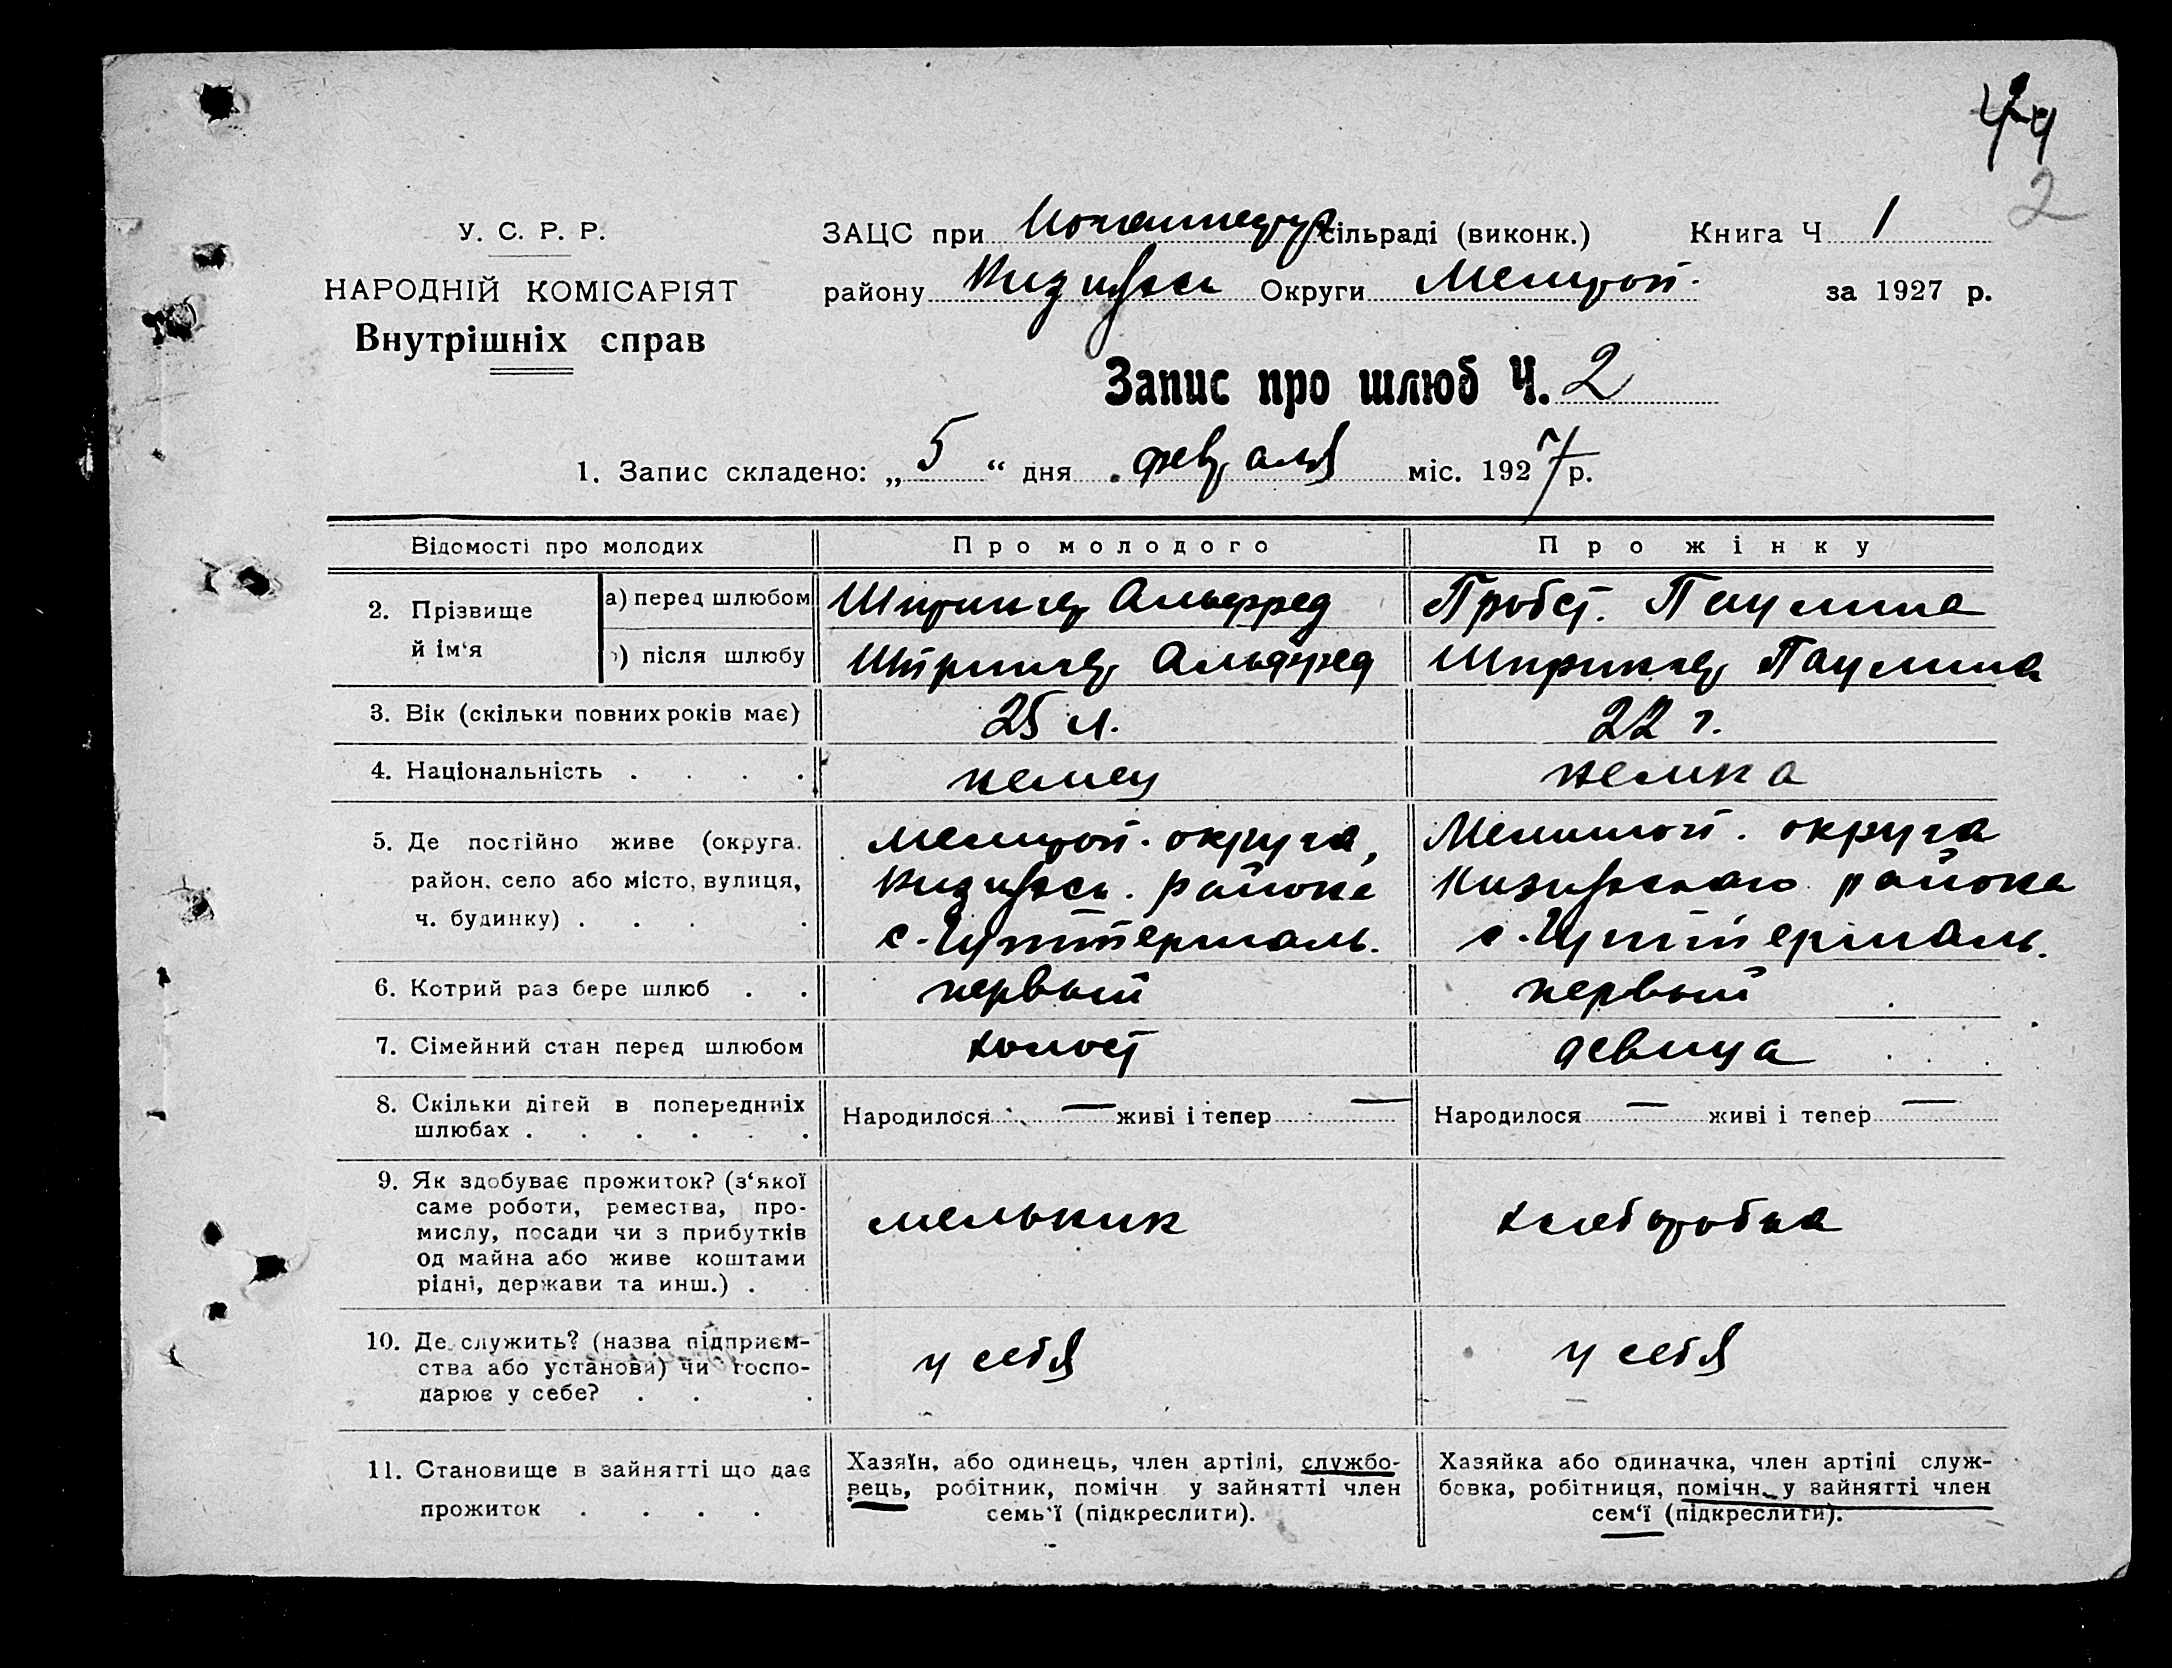 44
2
У. С. Р. Р.
НАРОДНІЙ КОМІСАРІЯТ
Внутрішніх справ
ЗАЦС при сільраді (виконк.) Книга Ч 1
району Округи Мелитоп. за 1927 р.
Запис про шлюб Ч. 2
1. Запис складено: „5“ дня февраля міс. 1927 р.
Відомості про молодих Про молодого Про жінку
2. Прізвище й ім‘я
а) перед шлюбом Штрингер Альфред Пробст. Паулина
б) після шлюбу Штрингер Альфред Штрингер Паулина
3. Вік (скільки повних років має) 25 л. 22 г.
4. Національність . . . . немец немка
5. Де постійно живе (округа. Мелитоп. округа, Мелитоп. округа
район, село або місто, вулиця, района района
ч. будинку) . . . . с. Гуттерталь. с. Гуттерталь.
6. Котрий раз бере шлюб . . первый первый
7. Сімейний стан перед шлюбом холост девица
8. Скільки дітей в попередніх Народилося — живі і тепер — Народилося — живі і тепер —
шлюбах . . . . . .
9. Як здобуває прожиток? (з‘якої
саме роботи, ремества, про-
мислу, посади чи з прибутків мельник хлеборобка
од майна або живе коштами
рідні, держави та инш.) . .
10. Де служить? (назва підприєм- у себя у себя
ства або установи) чи госпо-
дарює у себе? . . .
11. Становище в зайнятті що дає Хазяїн, або одинець, член артілі, службо- Хазяйка або одиначка, член артілі служ-
прожиток . . . . вець, робітник, помічн у зайнятті член бовка, робітниця, помічн. у зайнятті член
семь‘ї (підкреслити). сем‘ї (підкреслити).